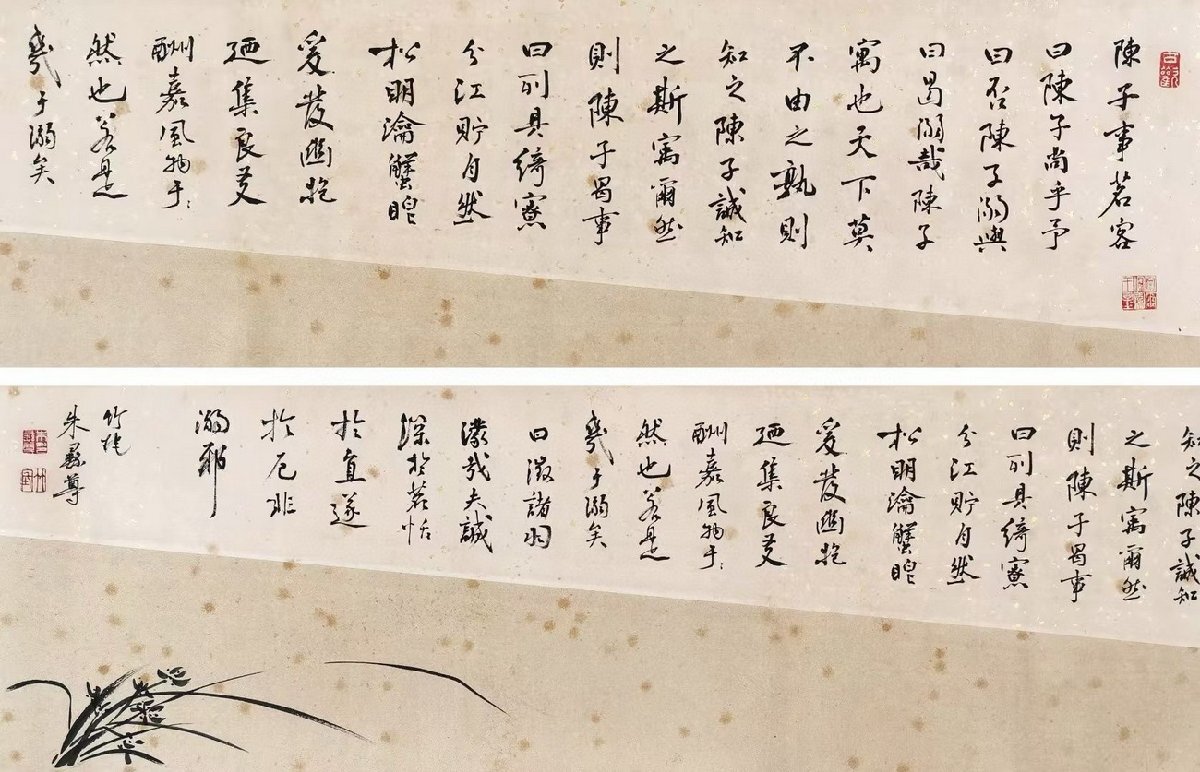 陳子事茗客
曰陳子尚乎予
曰否陳子溺與
曰曷溺哉陳子
寓也天下莫
不由之孰則
知之陳子誠知
之斯寓爾然
則陳子曷事
曰列具綺寮
分江貯月然
松明瀹蟹眼
爰發幽抱
迺集良友
酬嘉風物乎〻
然也若是
幾于溺矣
知之陳子誠知
之斯寓爾然
則陳子曷事
曰列具綺寮
分江貯月然
松明瀹蟹眼
爰發幽抱
迺集良友
酬嘉風物乎〻
然也若是
幾于溺矣
曰澂諸羽
哉夫誠
深於茗恬
於直遂
於卮非
溺耶
竹垞
朱彝尊